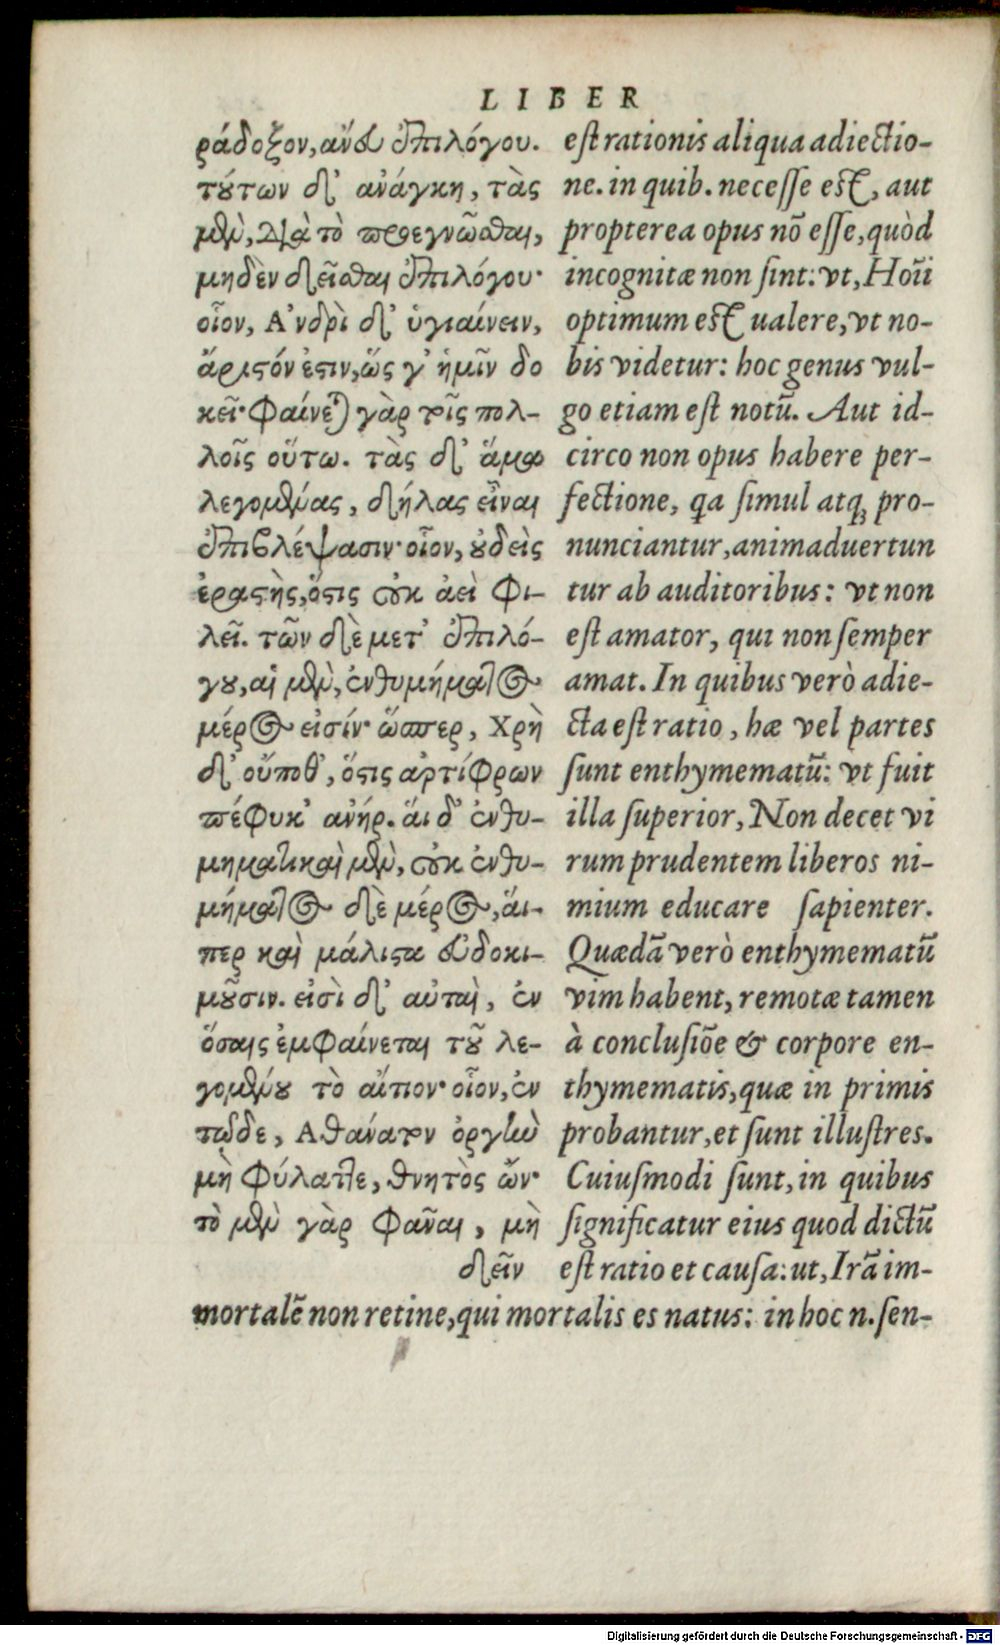 LIBER
ράδοξον, ἄνευ ἐπιλόγου.
τούτων δ' ἀνάγκη, τὰς
μὲν, διὰ τὸ προεγνῶσθαι,
μηδὲν δεῖσθαι ἐπιλόγου·
οἷον, Ἀνδρὶ δ' ὑγιαίνειν,
ἄριστόν ἐστιν, ὥς γ' ἡμῖν δο
κεῖ· φαίνεται γὰρ τοῖς πολ-
λοῖς οὕτω. τὰς δ' ἅμα
λεγομένας, δήλας εἶναι
ἐπιβλέψασιν· οἷον, οὐδεὶς
ἐραστὴς, ὅστις οὐκ ἀεὶ φι-
λεῖ. τῶν δὲ μετ' ἐπιλό-
γου, αἱ μὲν, ἐνθυμήματος
μέρος εἰσίν· ὥσπερ, Χρὴ
δ' οὔποθ', ὅστις ἀρτίφρων
πέφυκ' ἀνήρ. αἱ δ' ἐνθυ-
μηματικαὶ μὲν, οὐκ ἐνθυ-
μήματος δὲ μέρος, αἵ-
περ καὶ μάλιστα εὐδοκι-
μοῦσιν. εἰσὶ δ' αὗται, ἐν
ὅσαις ἐμφαίνεται τοῦ λε-
γομένου τὸ αἴτιον· οἷον, ἐν
τῷδε, Ἀθάνατον ὀργὴν
μὴ φύλαττε, θνητὸς ὤν·
τὸ μὲν γὰρ φᾶναι, μὴ
δεῖν
est rationis aliqua adiectio-
ne. in quib. necesse est, aut
propterea opus nõ esse, quòd
incognitæ non sint: vt, Hoĩi
optimum est ualere, vt no-
bis videtur: hoc genus vul-
go etiam est notũ. Aut id-
circo non opus habere per-
fectione, qa simul atq; pro-
nunciantur, animaduertun
tur ab auditoribus: vt non
est amator, qui non semper
amat. In quibus verò adie-
cta est ratio, hæ vel partes
sunt enthymematũ: vt fuit
illa superior, Non decet vi
rum prudentem liberos ni-
mium educare sapienter.
Quædã verò enthymematũ
vim habent, remotæ tamen
à conclusiõe & corpore en-
thymematis, quæ in primis
probantur, et sunt illustres.
Cuiusmodi sunt, in quibus
significatur eius quod dictũ
est ratio et causa: ut, Irã im-
mortalẽ non retine, qui mortalis es natus: in hoc n. sen-
Digitalisierung gefördert durch die Deutsche Forschungsgemeinschaft - DFG